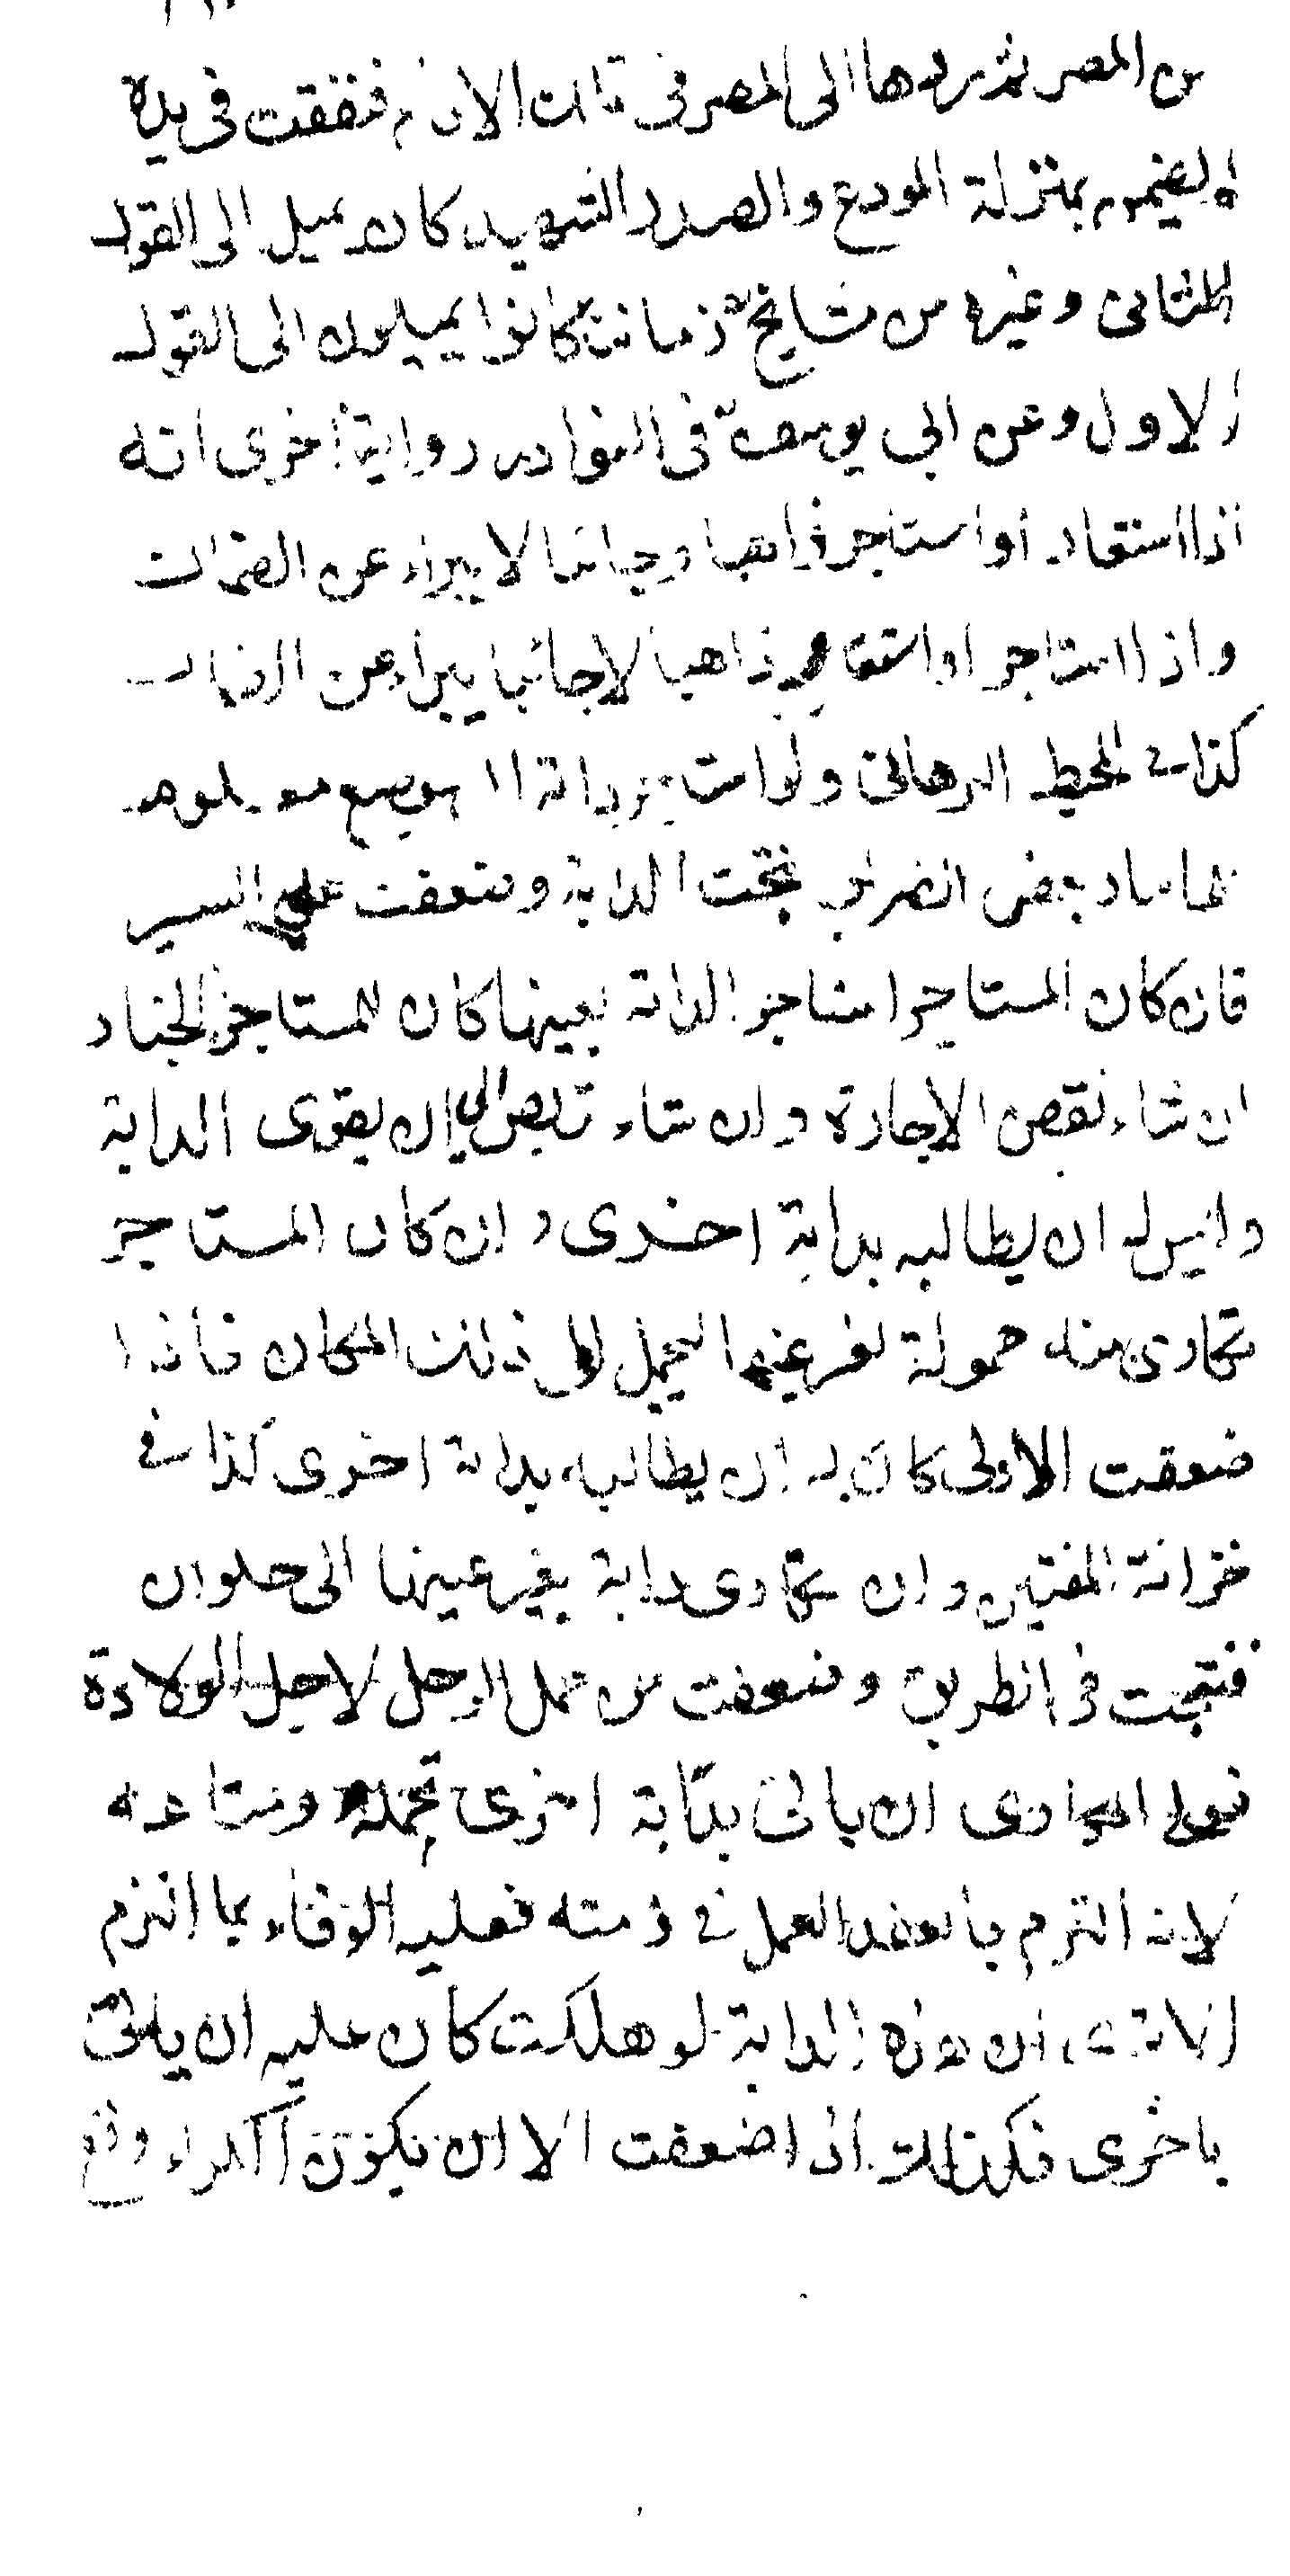 من المصر ثم ردها الى المصر في تلك الايام فنفقت في يده
بمنزلة المودع والصدر الشهيد كان يميل الى القول
الثاني وغيره من مشايخ زماننا كانوا يميلون الى القول
الاول وعن ابي يوسف في النوادر رواية اخرى انه
اذا استعار او استاجر ذاهبا وجائيا لا يبراء عن الضمان
واذا استاجر او استعار ذاهبا لا جائيا يبراء عن الضمان
كذا في المحيط البرهاني ولو استاجر دابة الى موضع معلوم
فلما سار بعض الطريق نتجت الدابة وضعفت على السير
فان كان المستاجر استاجر الدابة بعينها كان للمستاجر الخيار
ان شاء نقض الاجارة وان شاء تربص الى ان يقوى الدابة
وليس له ان يطالبه بدابة اخرى وان كان المستاجر
تكارى منه حمولة بغير عينها ليحمل الى ذلك المكان فاذا
ضعفت الاولى كان له ان يطالبه بدابة اخرى كذا في
خزانة المفتين وان تكارى دابة بغير عينها الى حلوان
فنتجت في الطريق وضعفت من حمل الرحل لاجل الولادة
فعلى المكارى ان ياتى بدابة اخرى تحمله ومتاعه
لانه التزم بالعقد العمل في ذمته فعليه الوفاء بما التزم
ان هذه الدابة لو هلكت كان عليه ان ياتى
باخرى فكذلك اذا ضعفت الا ان يكون الكراء وقع